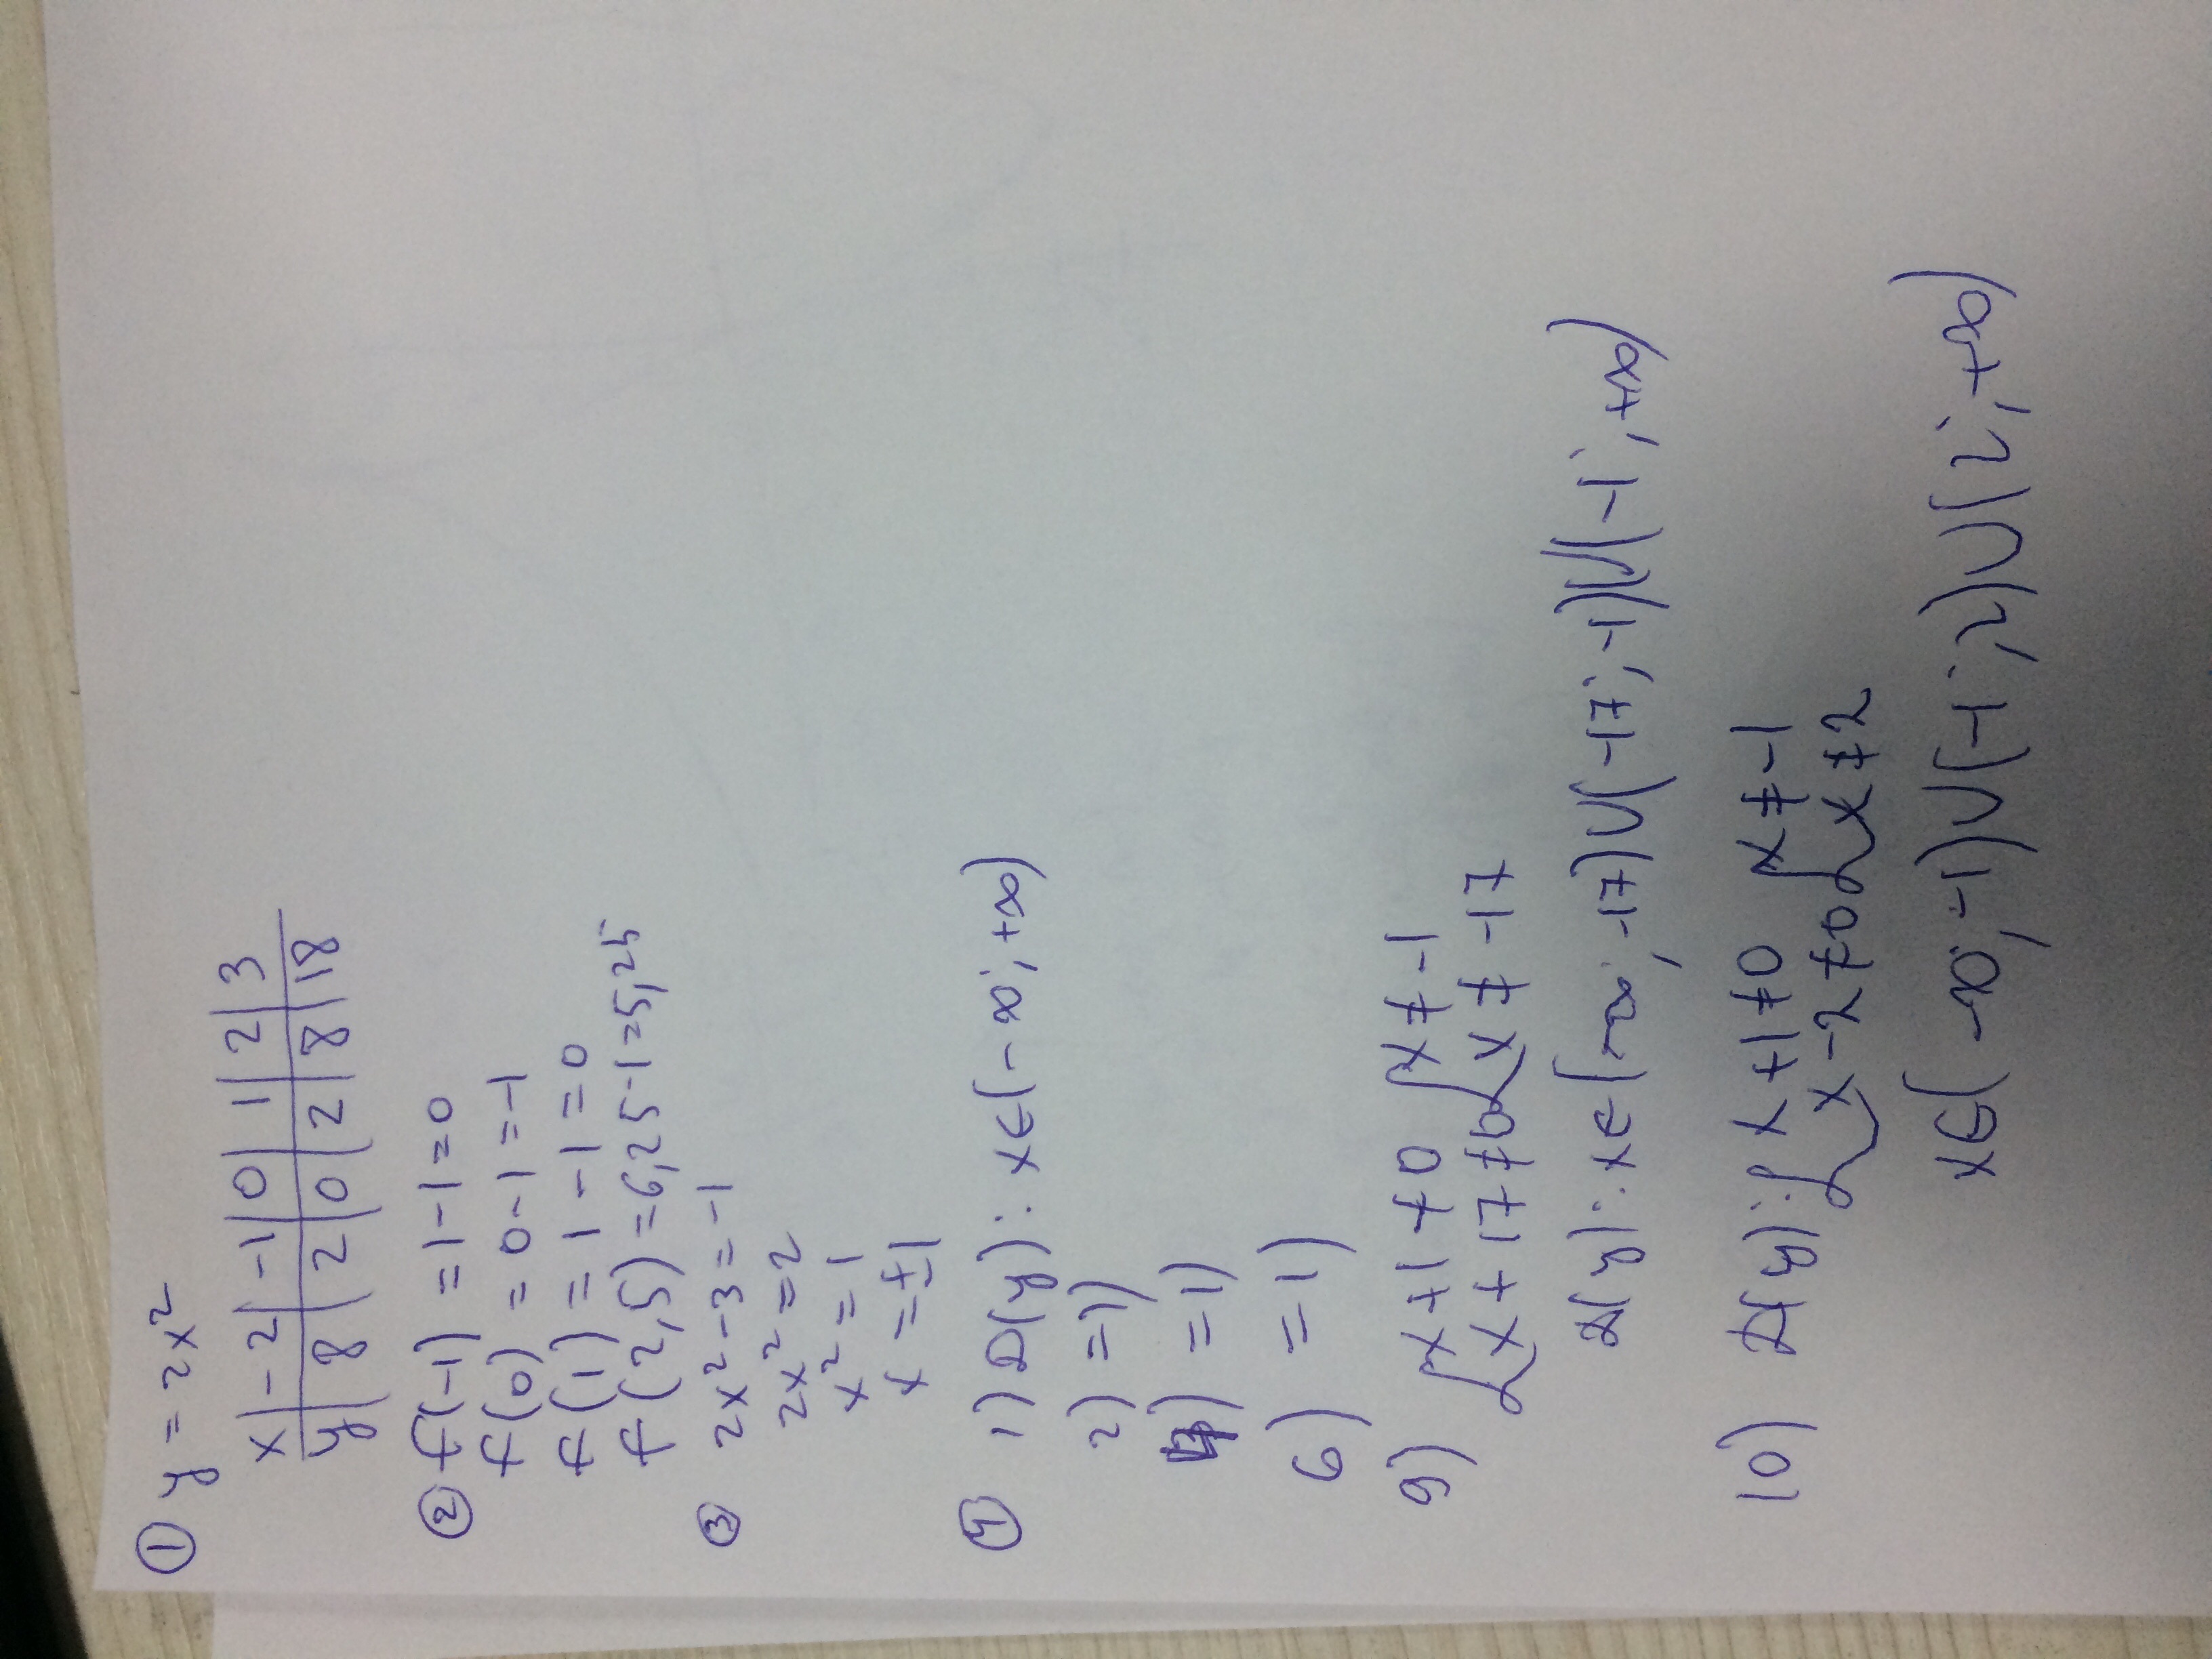 ① y = 2x²
x | -2 | -1 | 0 | 1 | 2 | 3
y | 8 | 2 | 0 | 2 | 8 | 18
② f(-1) = 1-1=0
f(0) = 0-1=-1
f(1) = 1-1=0
f(2,5) = 6,25-1=5,25
③ 2x²-3=-1
2x²=2
x²=1
x=±1
④ 1) D(y): x∈(-∞; +∞)
2) =1)
) =1)
6) =1)
9) { x+1≠0 { x≠-1
{ x+17≠0 { x≠-17
D(y): x∈(-∞; -17)∪(-17; -1)∪(-1; +∞)
10) D(y): { x+1≠0 { x≠-1
{ x-2≠0 { x≠2
x∈(-∞; -1)∪(-1; 2)∪(2; +∞)